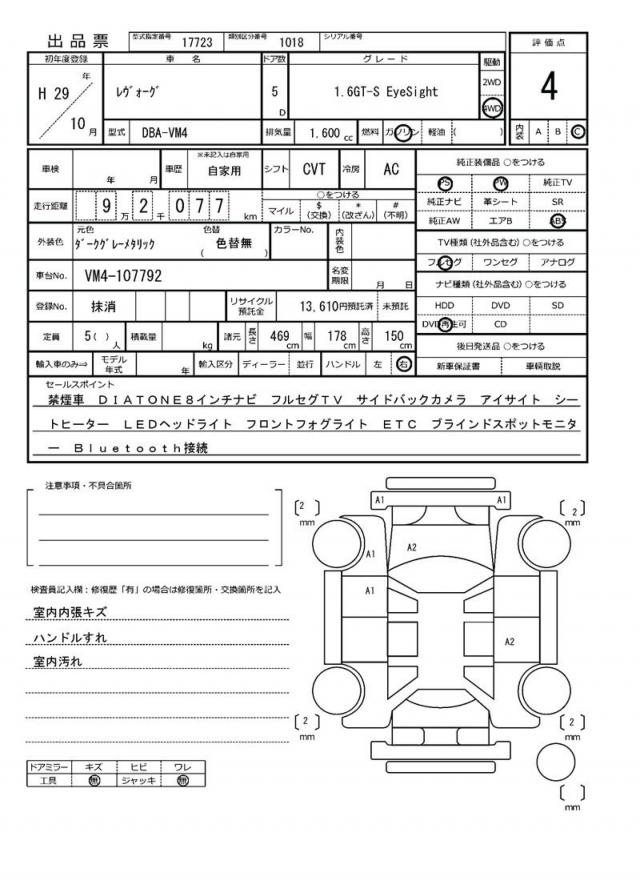 出品票 型式指定番号 17723 類別区分番号 1018 シリアル番号
初年度登録 車名 ドア数 グレード 駆動 評価点
H 29 年 10 月 ﾚｳﾞｫｰｸﾞ 5 D 1.6GT-S EyeSight 2WD 4WD 4
型式 DBA-VM4 排気量 1,600 cc 燃料 ガソリン 軽油 ( ) 内装 A B C
車検 年 月 車歴 ※未記入は自家用 自家用 シフト CVT 冷房 AC 純正装備品 ○をつける
PS PW 純正TV
走行距離 9 万 2 千 0 7 7 km ○をつける マイル $ (交換) * (改ざん) # (不明) 純正ナビ 革シート SR
純正AW エアB ABS
外装色 元色 ﾀﾞｰｸｸﾞﾚｰﾒﾀﾘｯｸ 色替 ( 色替無 ) カラーNo. 内装色 TV種類 (社外品含む) ○をつける
フルセグ ワンセグ アナログ
車台No. VM4-107792 名変期限 月 日 ナビ種類 (社外品含む) ○をつける
登録No. 抹消 リサイクル預託金 13,610円預託済 未預託 HDD DVD SD
DVD再生可 CD
定員 5( ) 人 積載量 kg 諸元 長さ 469 cm 幅 178 cm 高さ 150 cm 後日発送品 ○をつける
輸入車のみ⇒ モデル年式 年 輸入区分 ディーラー 並行 ハンドル 左 右 新車保証書 車輌取説
セールスポイント
禁煙車 DIATONE8インチナビ フルセグTV サイドバックカメラ アイサイト シー
トヒーター LEDヘッドライト フロントフォグライト ETC ブラインドスポットモニタ
ー Bluetooth接続
注意事項・不具合箇所
検査員記入欄：修復歴「有」の場合は修復箇所・交換箇所を記入
室内内張キズ
ハンドルすれ
室内汚れ
ドアミラー キズ ヒビ ワレ
工具 無 ジャッキ 無
[2] mm A1 A1 [2] mm
A1 A2
A1
A2
[2] mm [2] mm
[ ] mm